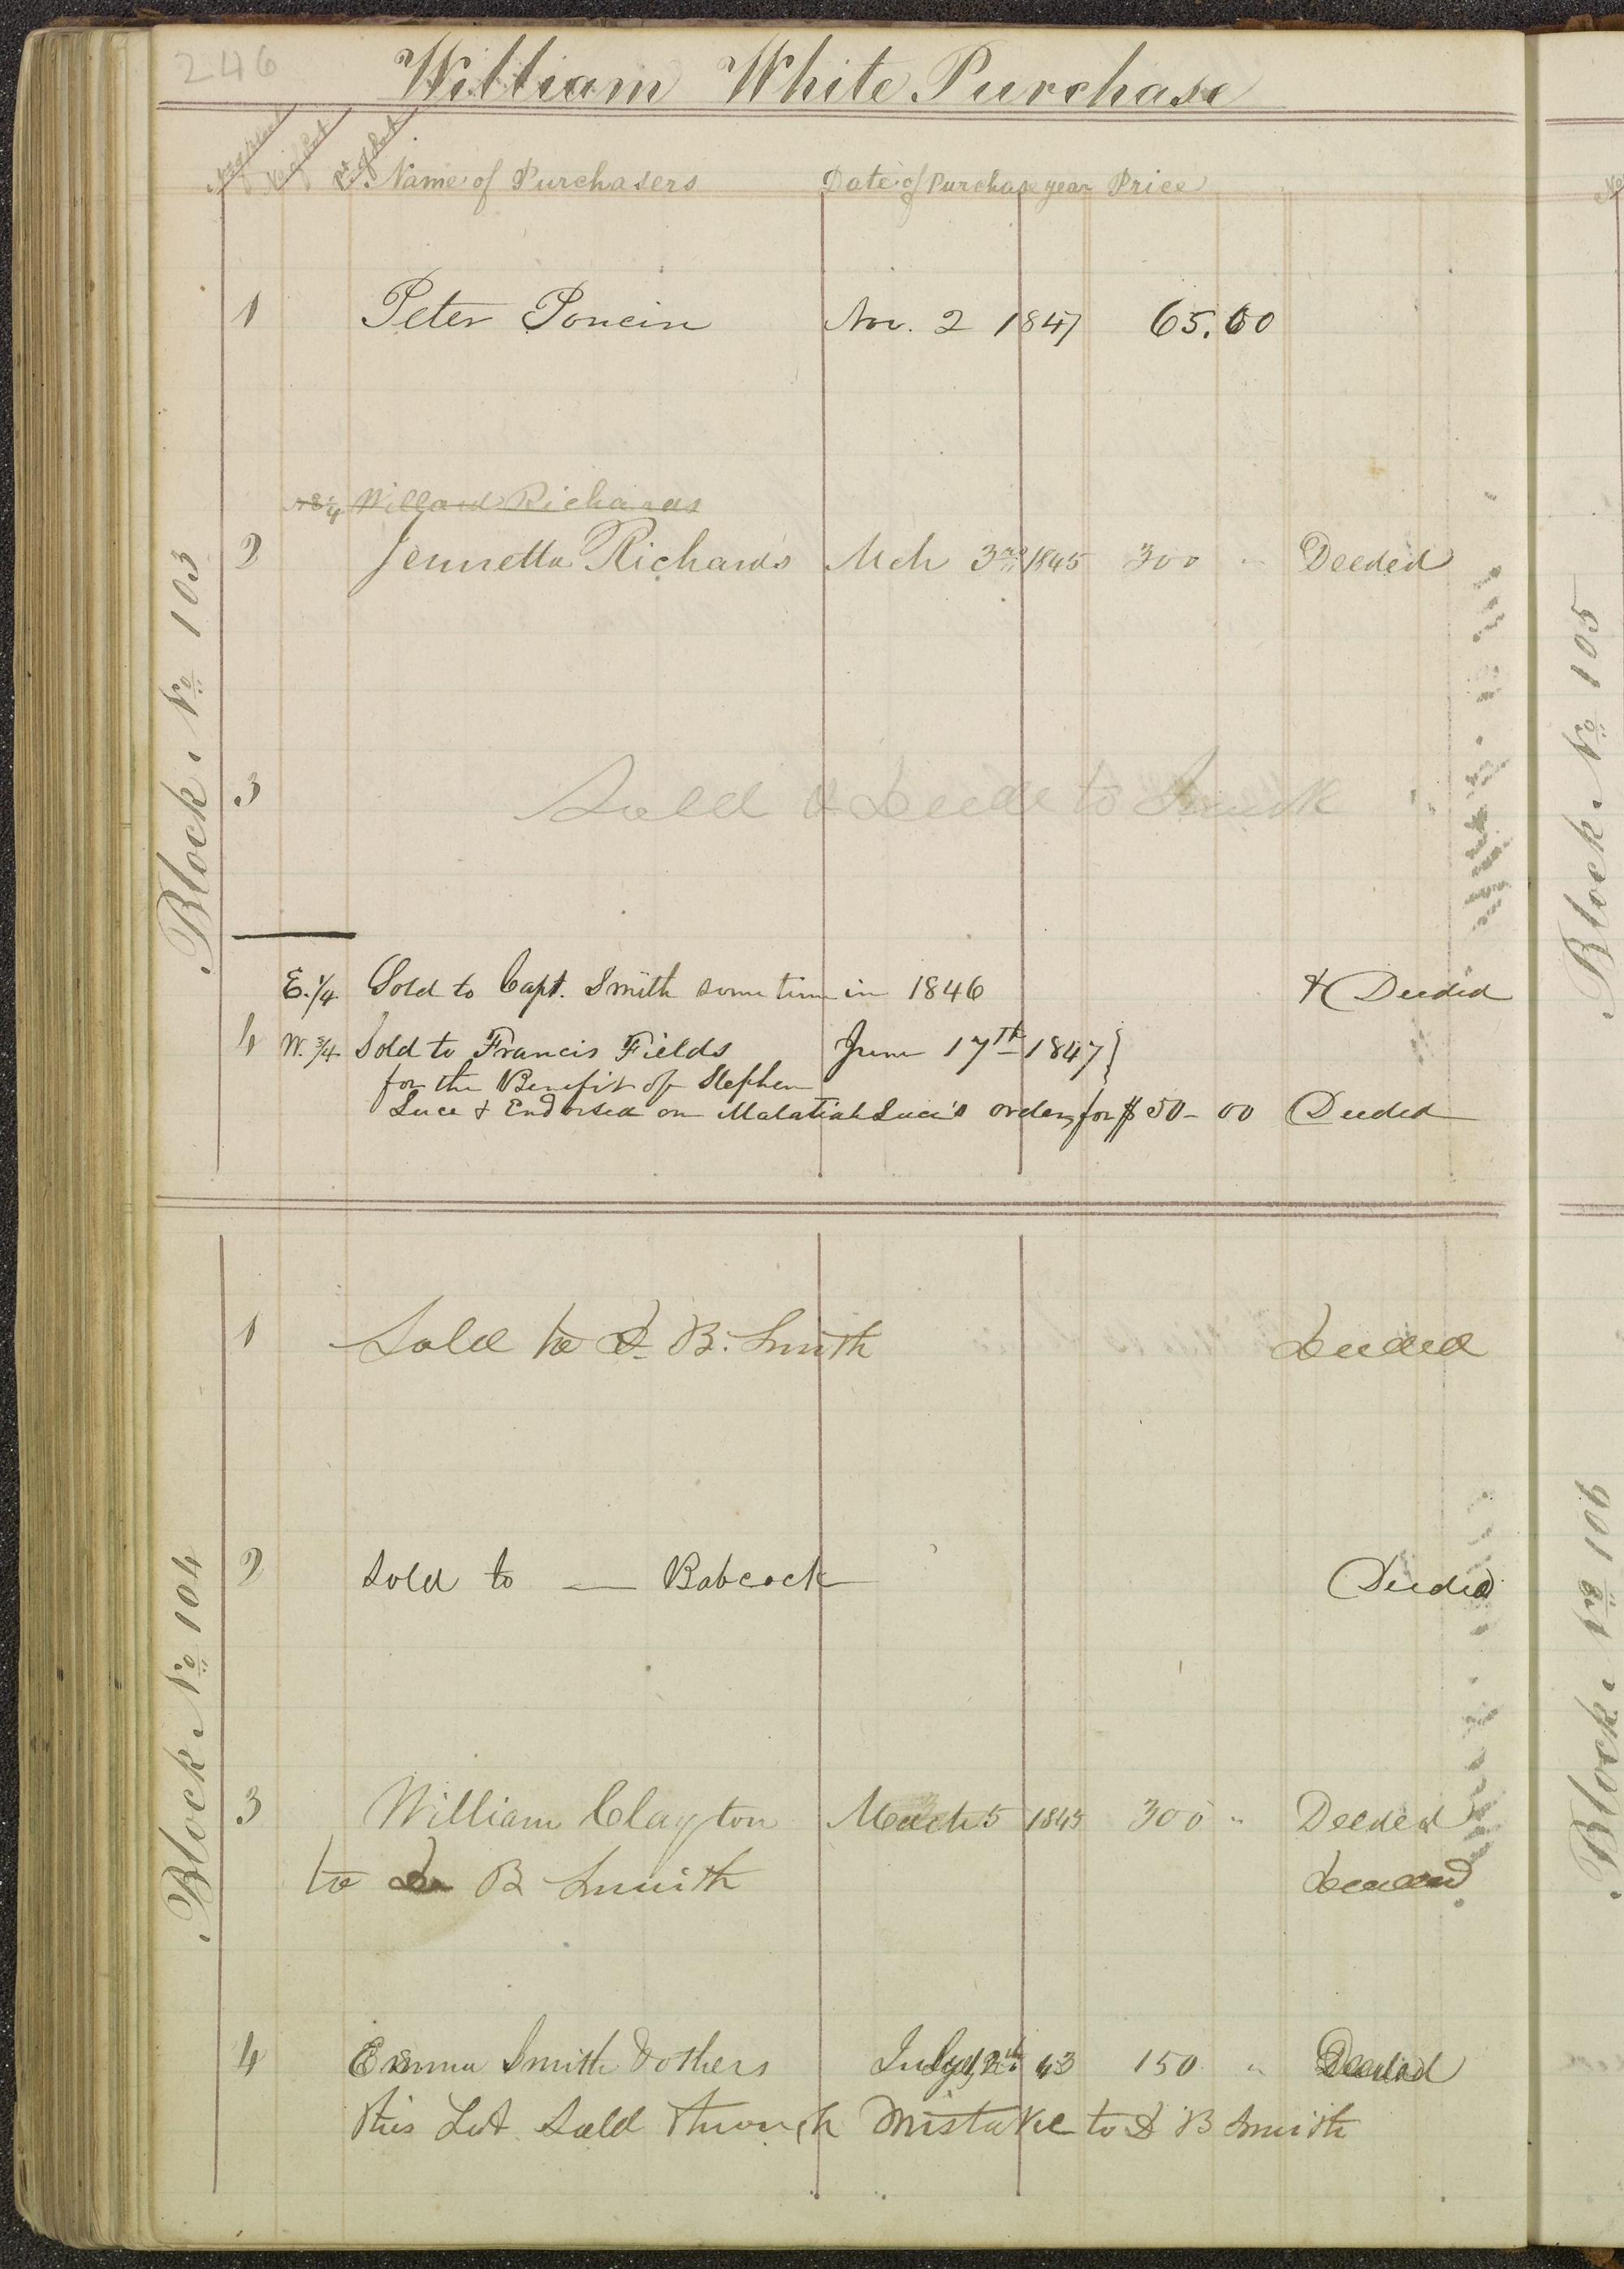 246
William White Purchase
No of Block No of Lot Pt of Lot Name of Purchasers Date of Purchase year Price
Block. No 103
1 Peter Poncin Nov. 2 1847 65.00
Willard Richards
2 Jennetta Richards Mch 3rd 1845 300 " Deeded
3 Sold & Deed to Smith
E. 1/4 Sold to Capt. Smith some time in 1846 & Deeded
4 W. 3/4 Sold to Francis Fields June 17th 1847 }
for the Benefit of Stephen
Luce & Endorsed on Malatiah Luce's order, for $ 50-00 Deeded
Block. No 104
1 Sold to B. Smith Deeded
2 Sold to — Babcock Deeded
3 William Clayton March 5 1845 300 " Deeded
to B Smith Deeded
4 Emma Smith & others July 12th 43 150 " Deeded
this Lot Sold through Mistake to B Smith
Block. No 105
Block. No 106